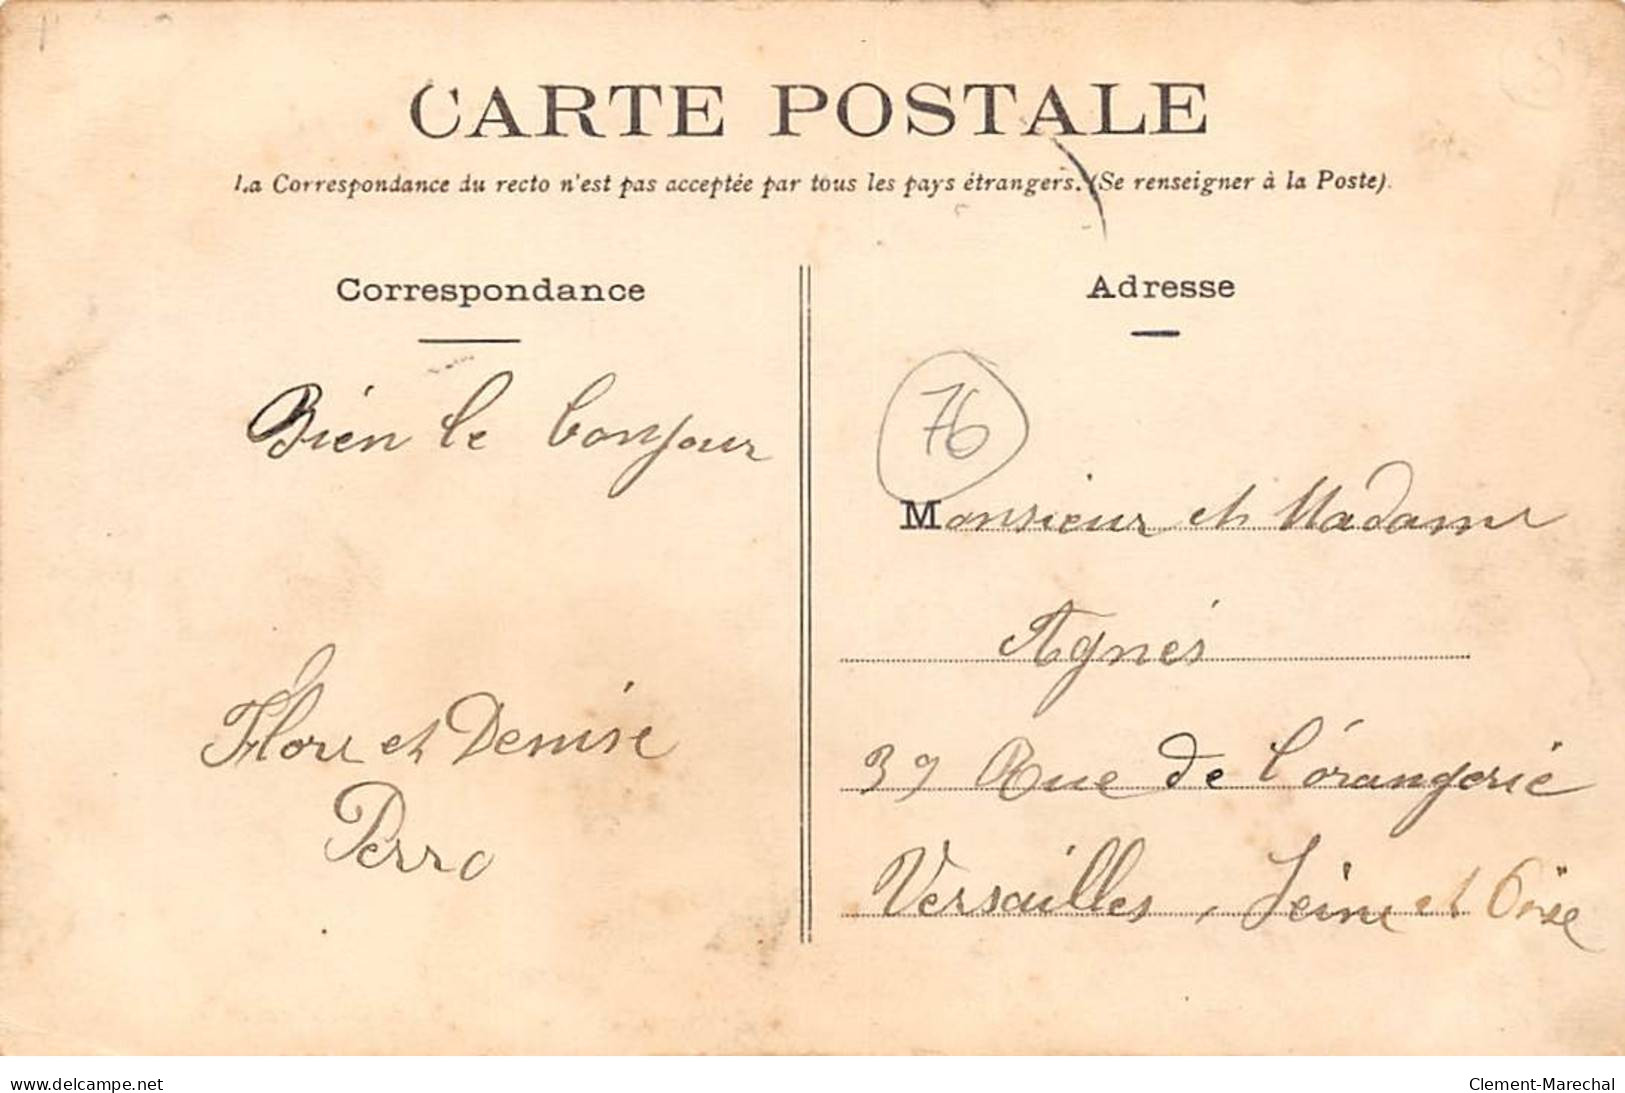 CARTE POSTALE
La Correspondance du recto n'est pas acceptée par tous les pays étrangers. (Se renseigner à la Poste).
Correspondance
Bien le bonjour
Flore et Denise
Perro
Adresse
76
Monsieur et Madame
Agnés
39 Rue de l'orangerie
Versailles, Seine et Oise
www.delcampe.net
Clement-Marechal